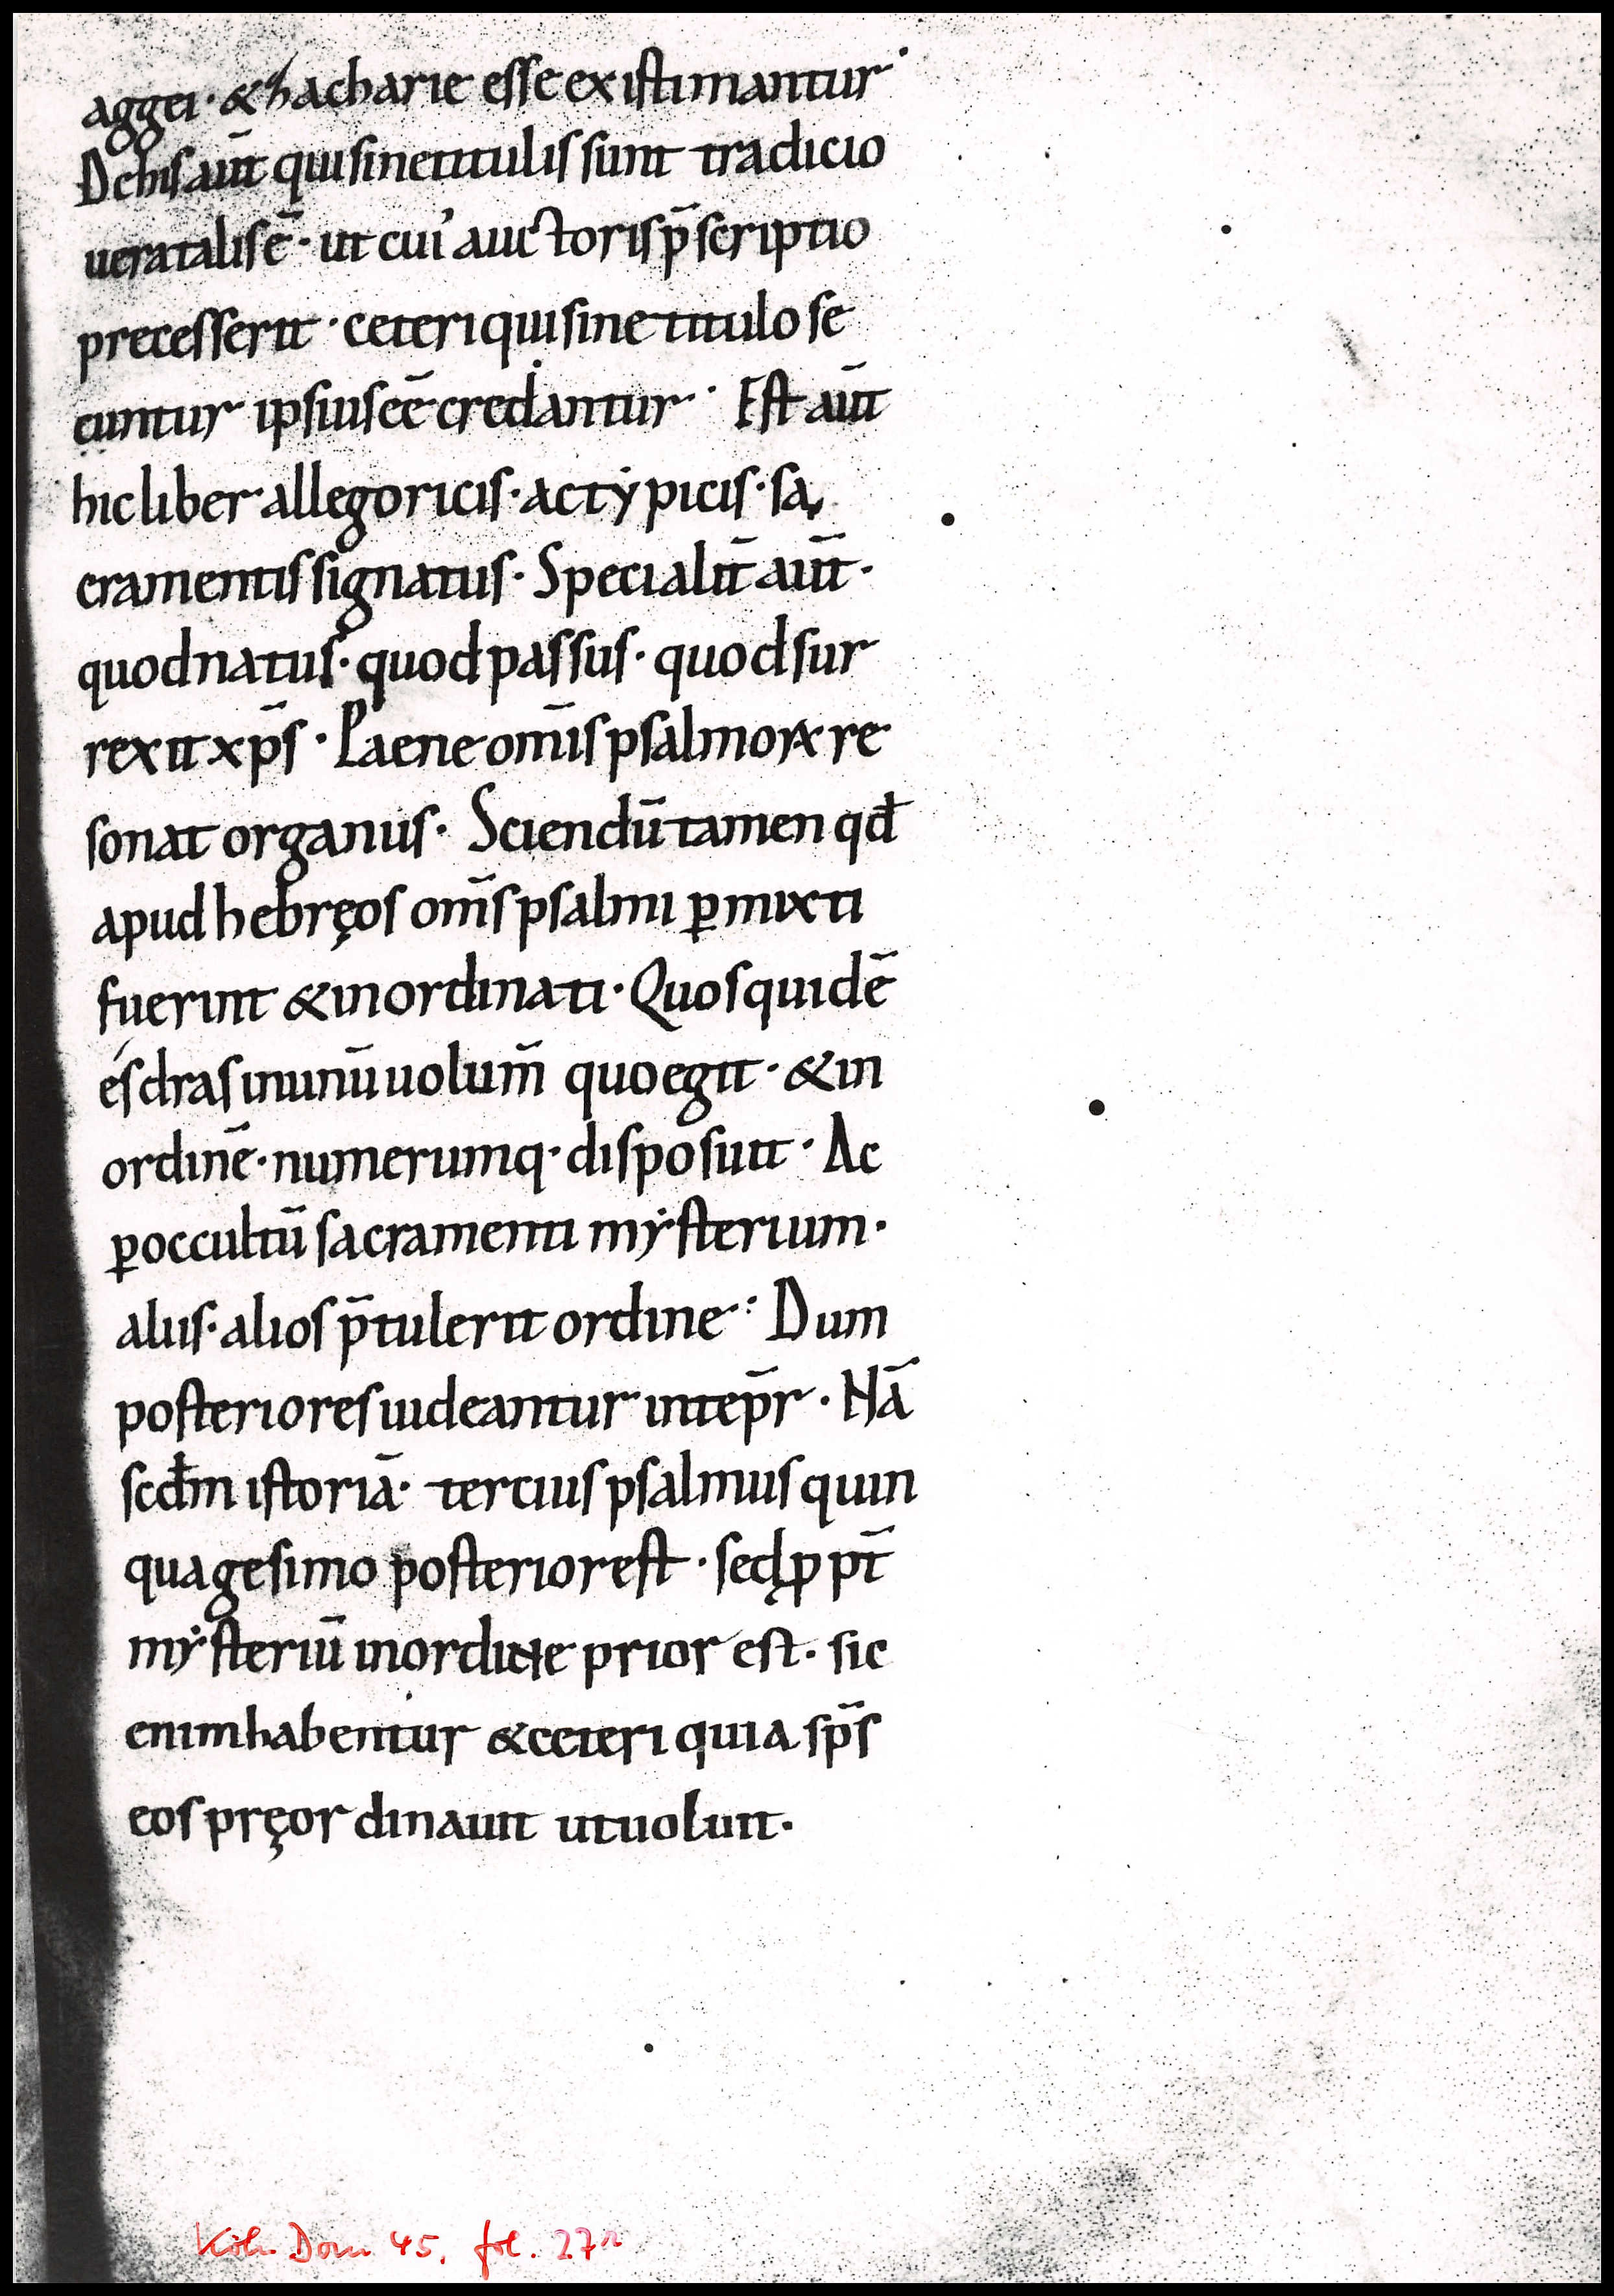 aggei · & hacharie esse existimantur ·
De his aut̄ qui sine titulis sunt tradicio
uera talis ē · ut cui' auctoris p̄scriptio
precesserit · ceteri qui sine titulo se
cuntur ipsius eē credantur · Est aut̄
hic liber allegoricis · ac typicis · sa
cramentis signatus · Specialit̄ aut̄ ·
quod natus · quod passus · quod sur
rexit xp̄s · Paene om̄is psalmoꝝ re
sonat organus · Sciendū tamen qđ
apud hebręos om̄s psalmi ꝑmixti
fuerint & inordinati · Quos quidē
ésdras in unū uolum̄ quo egit · & in
ordinē · numerumq · disposuit · Ac
ꝑ occultū sacramenti mẏsterium ·
aliis · alios p̄tulerit ordine · Dum
posteriores uideantur intep̄r · Nā
scđm istoriā · tercius psalmus quin
quagesimo posterior est · sed ꝓpt̄
mẏsteriū in ordine prior est · sic
enim habentur & ceteri quia sp̄s
eos pręordinauit ut uoluit ·
Köln Dom 45, fol. 27r